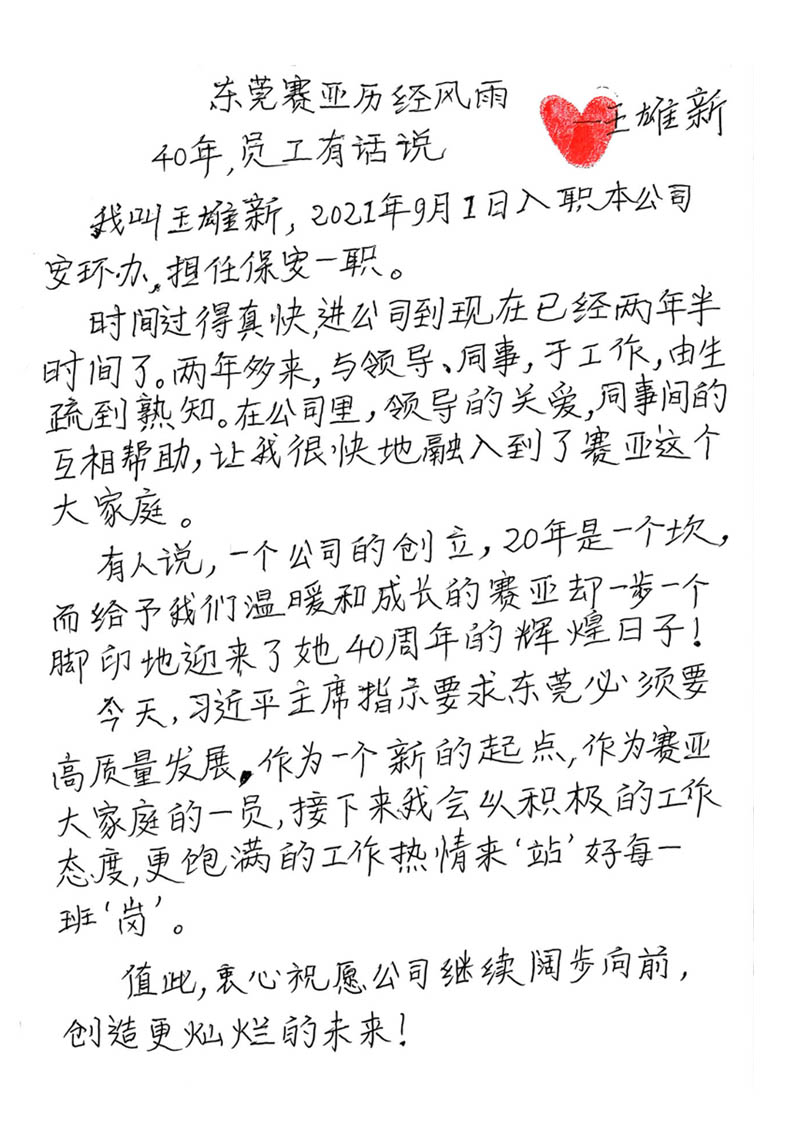 东莞赛亚历经风雨
40年,员工有话说
—王雄新
我叫王雄新,2021年9月1日入职本公司
安环办,担任保安一职。
时间过得真快,进公司到现在已经两年半
时间了。两年多来,与领导、同事,于工作,由生
疏到熟知。在公司里,领导的关爱,同事间的
互相帮助,让我很快地融入到了赛亚这个
大家庭。
有人说,一个公司的创立,20年是一个坎,
而给予我们温暖和成长的赛亚却一步一个
脚印地迎来了她40周年的辉煌日子!
今天,习近平主席指示要求东莞必须要
高质量发展,作为一个新的起点,作为赛亚
大家庭的一员,接下来我会以积极的工作
态度,更饱满的工作热情来‘站’好每一
班‘岗’。
值此,衷心祝愿公司继续阔步向前,
创造更灿烂的未来!